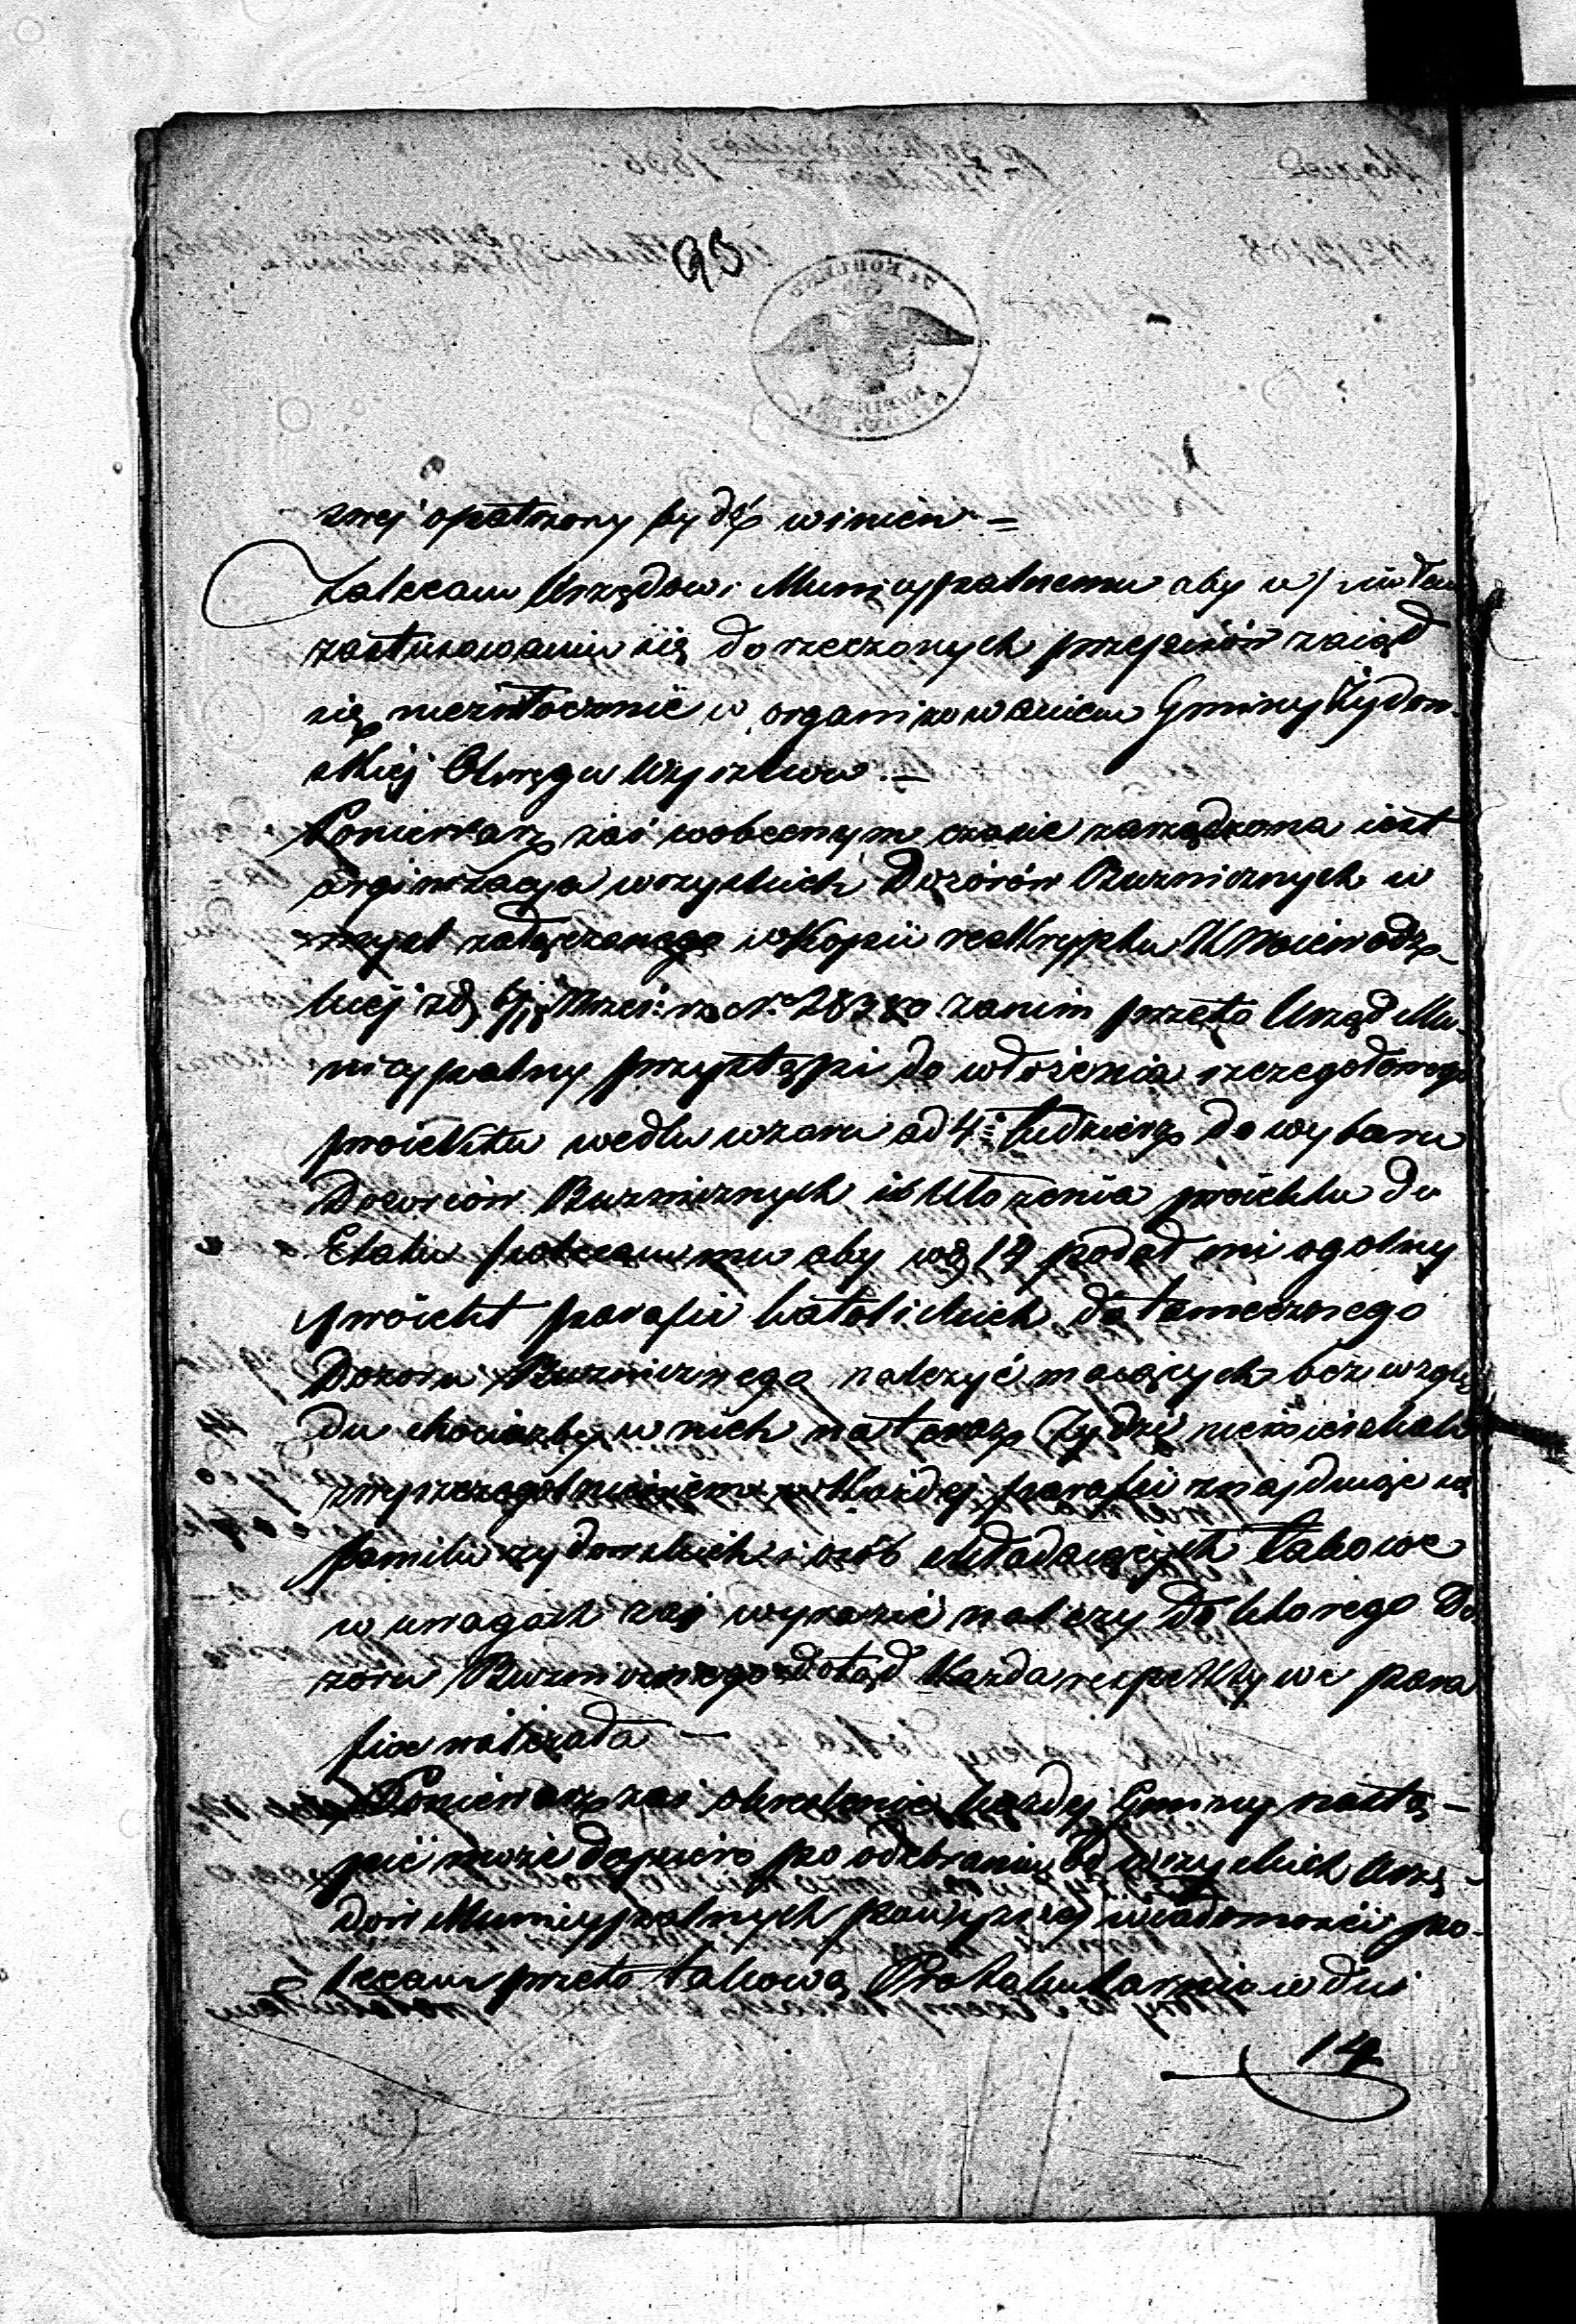 95
szej opatrzony bydź winien =
Zalecam Urzędowi Municypalnemu aby w
zastusowaniu się do rzeczonych przepisów zaiął
się niezwłocznie w organizowaniem Gminy Żydow-
skiej Okręgu Wyszkow. —
Ponieważ zaś wobecnym czasie zarządzona iest
orginizacya wszystkich Dozorów Buzniczných w
myśl załączonego w Kopii reskryptu K Woiewodz-
kiej zd N. 28380 zanim przeto Urząd Mu-
nicypalny przystąpi do ułożenia szczegułowego
proiektu wedłu wzoru ad 4 tudzież do wyboru
Dozorców Buzniczných i ułożenia proiektu do
Etatu polecam mu aby w d 14 podał mi ogolny
proiekt parafii katolickich do tamecznego
Dozoru Buznicznego należyć maiących bez wzglę
du chociażby w nich nateraz Żydzi niemieszkali
zwyszczegolnieniem w Każdej parafii znajduiące się
familii żydowskich i osób składaiących takowe
w uwagach zaś wyrazić należy do którego Do
zoru Buznicznego dotąd Każda respektywe para
fia należała —
Ponieważ zaś określenie każdej Gminy nastą-
pić może dopiero po odebraniu od wszystkich Urzę-
dów Municypalnych powyższej wiadomości po-
lecam przeto takową w dni
14